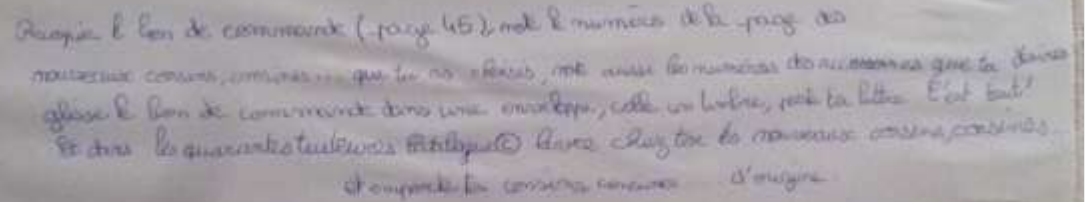 Recopie le bon de commande (page 45), note le numéro de la page des
nouveaux cousins, cousines... que tu as choisis, note aussi les numéros des accessoires que tu désires
glisse le bon de commande dans une enveloppe, colle un timbre, poste ta lettre. C'est tout!
Et dans les quarante huit heures livre chez toi tes nouveaux cousins, cousines...
et emporte tes cousins, cousines d'origine.